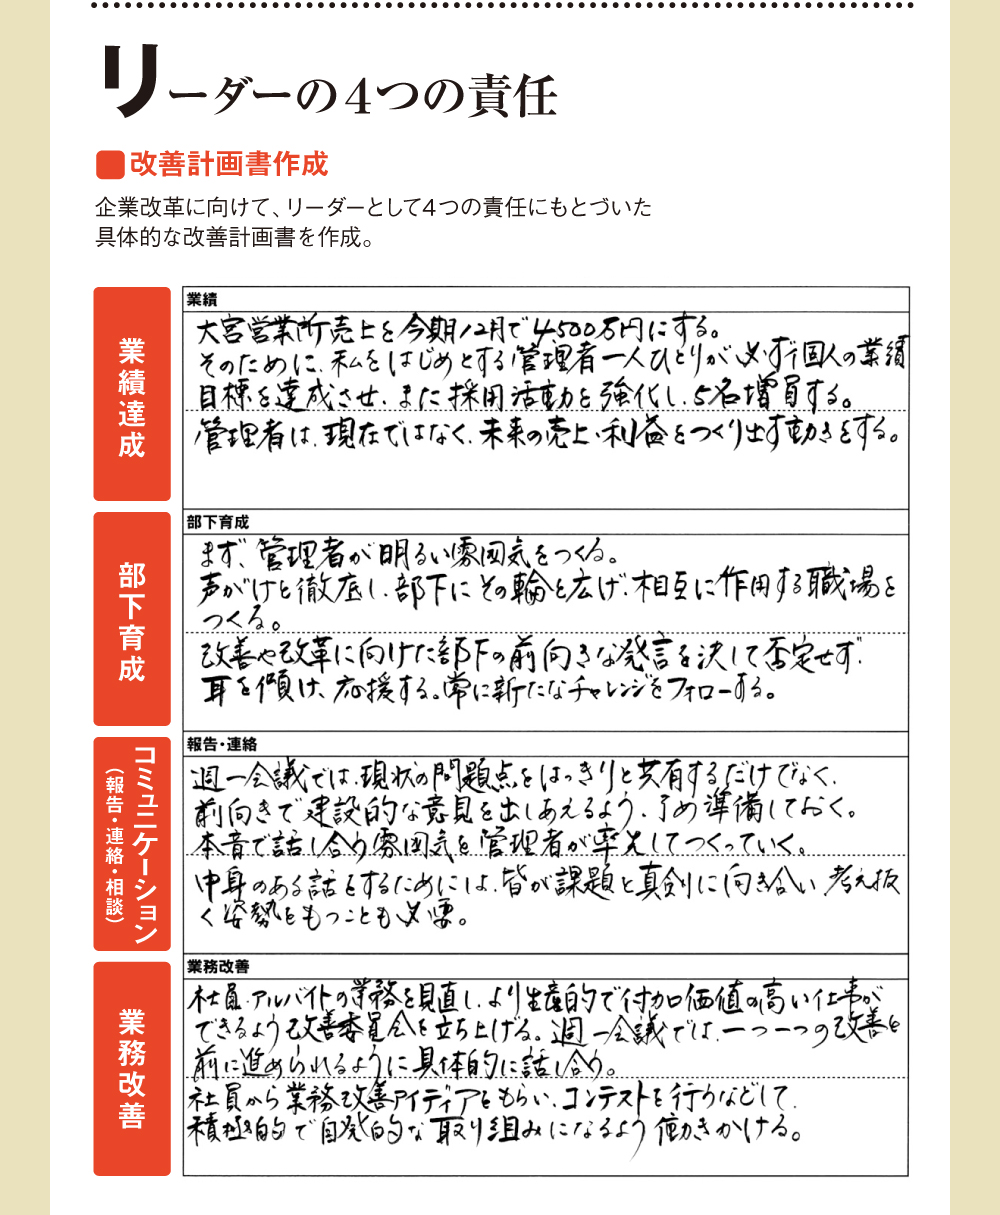 リーダーの4つの責任
改善計画書作成
企業改革に向けて、リーダーとして4つの責任にもとづいた
具体的な改善計画書を作成。
業績達成
業績
大宮営業所売上を今期12月で4,500万円にする。
そのために、私をはじめとする管理者一人ひとりが必ず個人の業績
目標を達成させ、また採用活動を強化し、5名増員する。
管理者は、現在ではなく、未来の売上・利益をつくり出す動きをする。
部下育成
部下育成
まず、管理者が明るい雰囲気をつくる。
声がけを徹底し、部下にその輪を広げ、相互に作用する職場を
つくる。
改善や改革に向けた部下の前向きな発言を決して否定せず、
耳を傾け、応援する。常に新たなチャレンジをフォローする。
コミュニケーション
（報告・連絡・相談）
報告・連絡
週一会議では、現状の問題点をはっきりと共有するだけでなく、
前向きで建設的な意見を出しあえるよう、予め準備しておく。
本音で話し合う雰囲気を管理者が率先してつくっていく。
中身のある話をするためには、皆が課題と真剣に向き合い考え抜
く姿勢をもつことも必要。
業務改善
業務改善
社員・アルバイトの業務を見直し、より生産的で付加価値の高い仕事が
できるよう改善委員会を立ち上げる。週一会議では、一つ一つの改善を
前に進められるように具体的に話し合う。
社員から業務改善アイディアをもらい、コンテストを行うなどして、
積極的で自発的な取り組みになるよう働きかける。